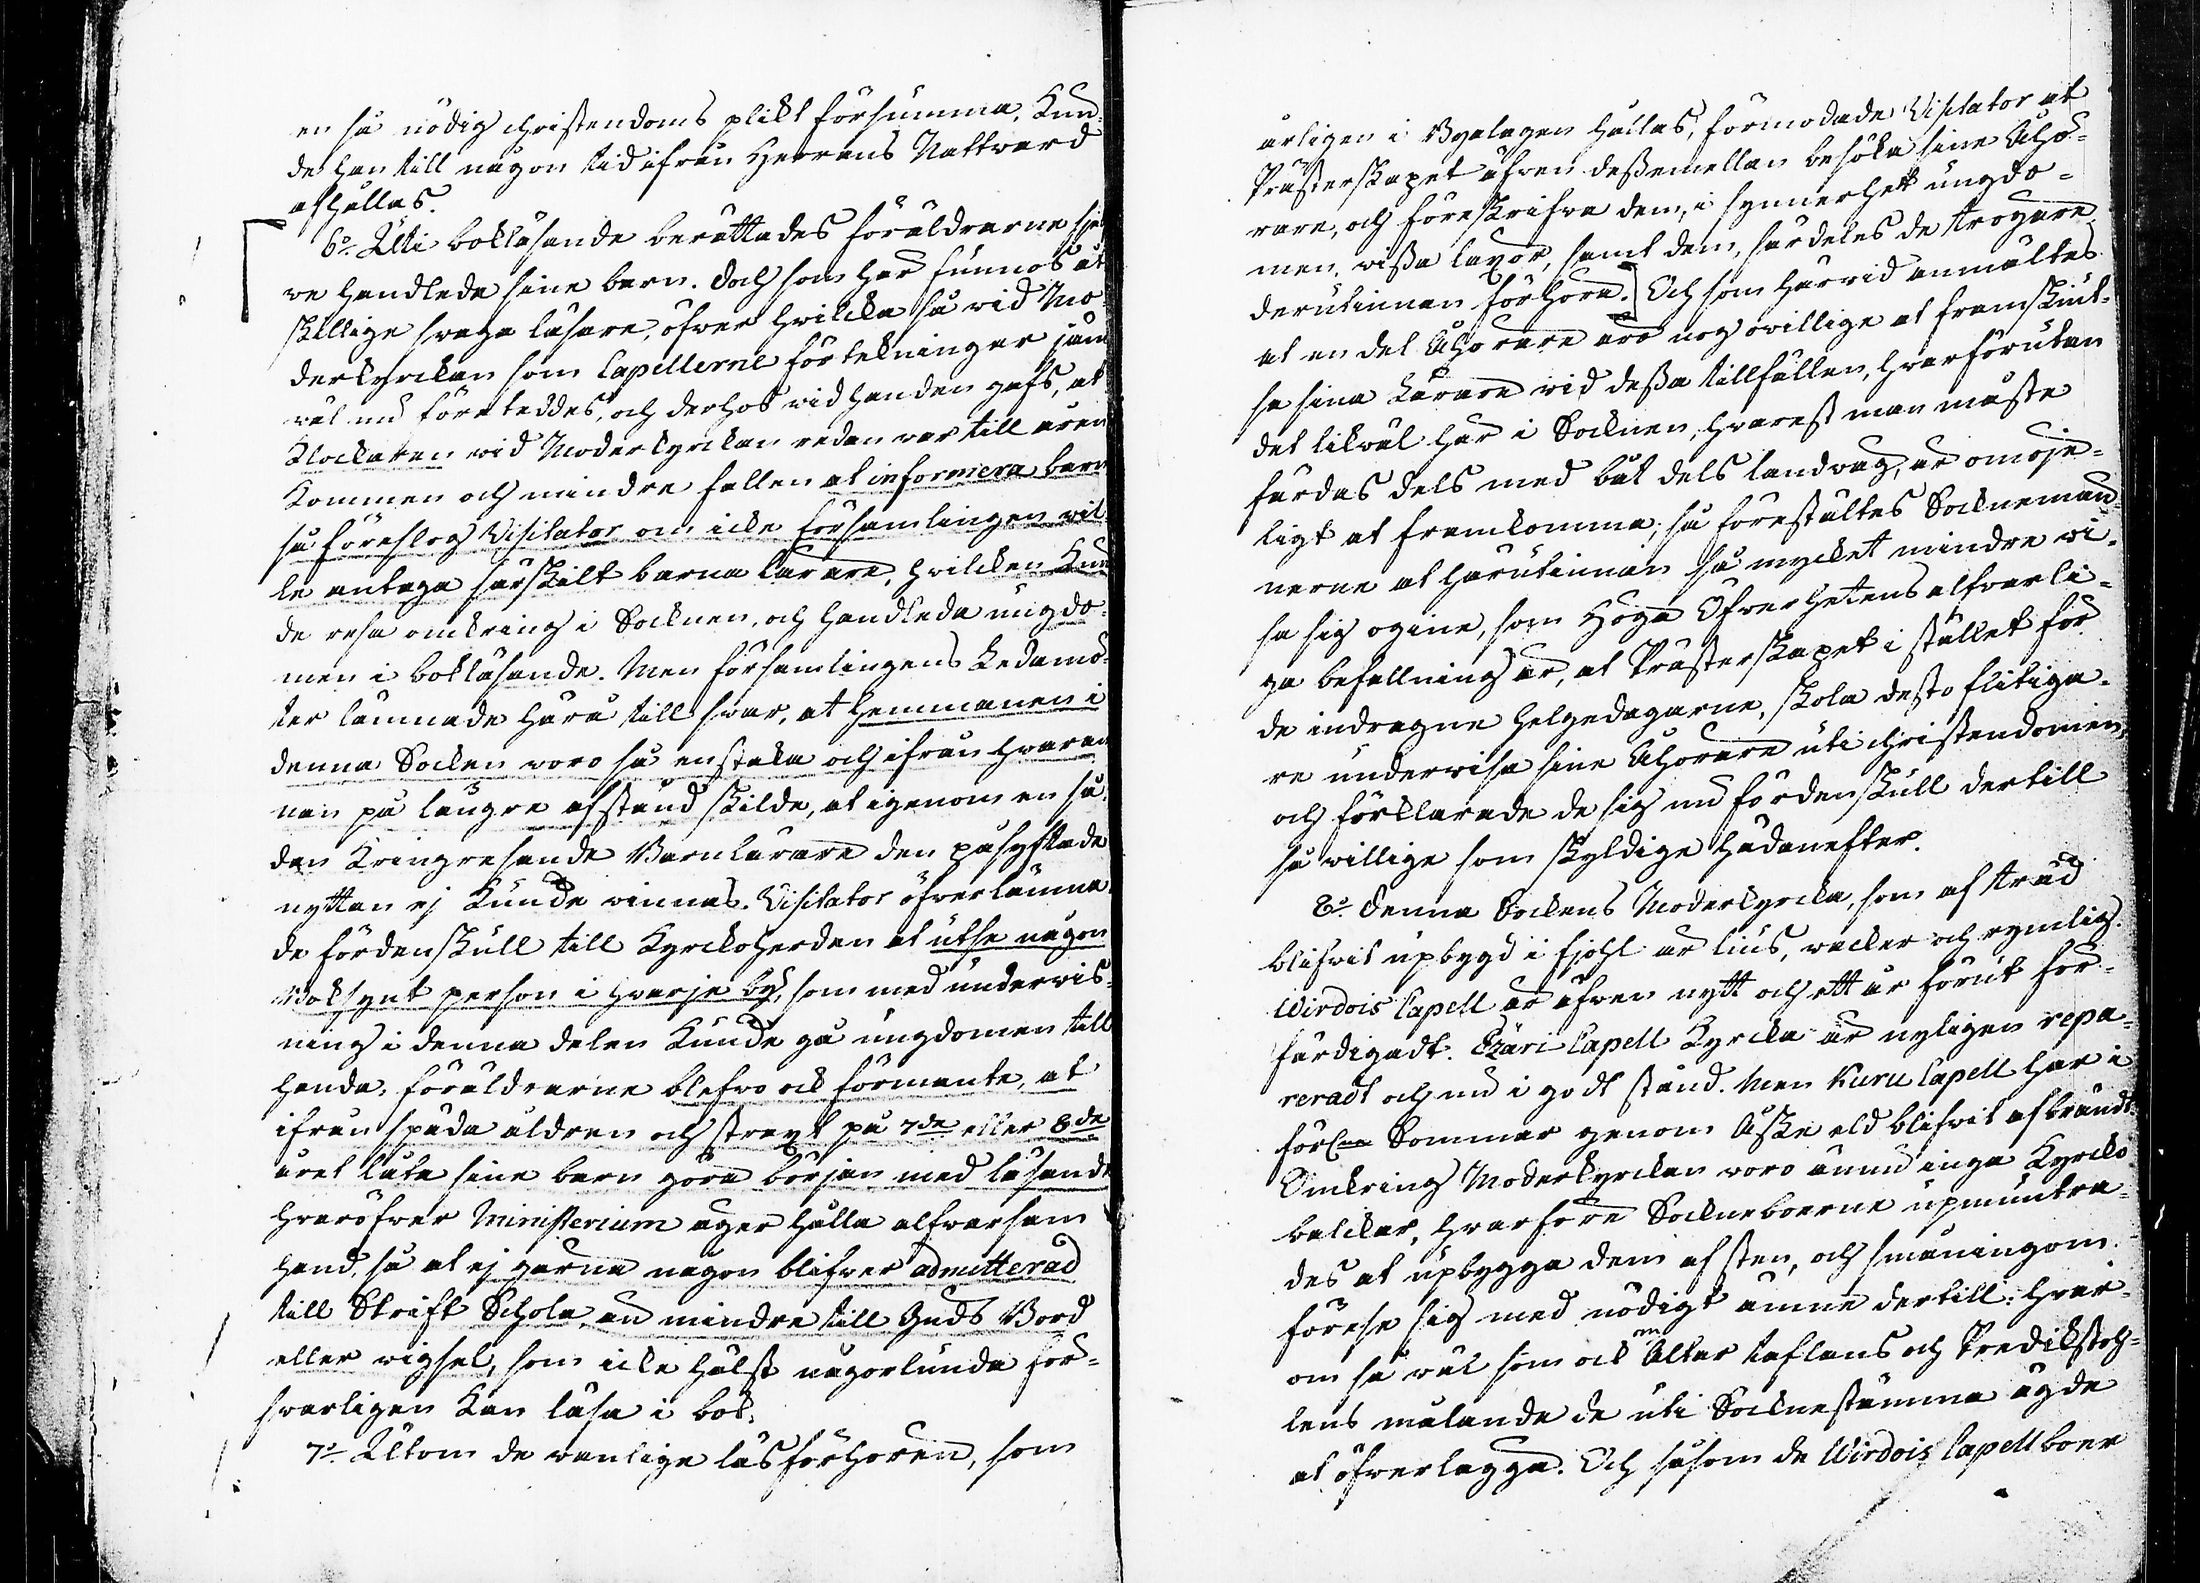 en så nödig christendoms plikt försumma, Kun-
de han till någon tid ifrån Herrans Nattvard
afhållas.
6o. Uti bokläsande berättades föräldrarne sjel-
ve handleda sine barn. Doch som här funnos åt-
skillige svaga läsare, öfver hvilcka så vid Mo-
derkyrckan som Capellerne förtekningar jäm
väl nu företeddes, och derhos vid handen gafs, at
Klockaren vid Moderkyrckan redan var till åren
Kommen och mindre fallen at informera barn
så föreslog Visitator om icke församlingen vil-
le antaga särskilt barna lärare, hvilcken Kun
de resa omkring i Socknen, och handleda ungdo-
men i bokläsande. Men församlingens Ledamö-
ter lämnade härå till svar, at hemmanen i
denna Socken voro så enstaka och ifrån hvaran
nan på längre afstånd skilde, at igenom en så-
dan Kringresande Barnlärare den påsyftade
nyttan ej Kunde vinnas. Visitator öfverlämna-
de fördenskull till Kyrckoherden at utse någon
Boksynt person i hvarje by, som med undervis-
ning i denna delen Kunde gå ungdomen till
handa; föräldrarne blefvo ock förmante, at
ifrån späda åldren och straxt på 7de eller 8de
året låta sine barn göra början med läsande
hvaröfver Ministerium äger hålla alfvarsam
hand, så at ej gärna någon blifver admitterad
till Skrift Schola, än mindre till Guds Bord
eller vigsel, som icke hälst någorlunda för-
svarligen Kan läsa i bok.
7o. Utom de vanlige läsförhören, som
årligen i Byalagen hållas, förmodade Visitator at
Prästerskapet äfven dessemellan besöka sine Åhö-
rare, och föreskrifva dem, i synnerhet ungdo-
men, vissa laxor, samt dem, särdeles de trögare
derutinnan förhöra. Och som härvid anmältes
at en del Åhörare äro nog ovillige at framskjut-
sa sina Lärare vid dessa tillfällen, hvarförutan
det likväl här i Socknen, hvarest man måste
färdas dels med båt dels landväg, är omöje-
ligt at framkomma; så föreståltes Sockneman-
nerne at härutinnan så mycket mindre vi-
sa sig ogine, som Höga Öfverhetens alfvarli-
ga befallning är, at Prästerskapet i stället för
de indragne helgedagarne, skola desto flitiga-
re undervisa sine Åhörare uti christendomen,
och förklarade de sig nu fördenskull dertill
så villige som skyldige hädanefter.
8o. Denna Sockens Moderkyrcka, som af träd
blifvit upbygd i fjohl är lius, vacker och rymlig.
Wirdois Capell är äfven nytt och ett år förut för-
färdigadt. Ezäri Capell Kyrcka är nyligen repa-
reradt och nu i godt stånd. Men Kuru Capell har i
förl. Sommar genom Åske eld blifvit afbrändt.
Omkring Moderkyrckan voro ännu inga Kyrcko
balckar, hvarföre Sockneboerne upmuntra-
des at upbygga dem af sten, och småningom
förese sig med nödigt ämne dertill: hvar-
om så väl som ock om Altar taflans och Predikstoh-
lens målande de uti Sockenstämma ägde
at öfverlägga. Och såsom de Wirdois Capellboer